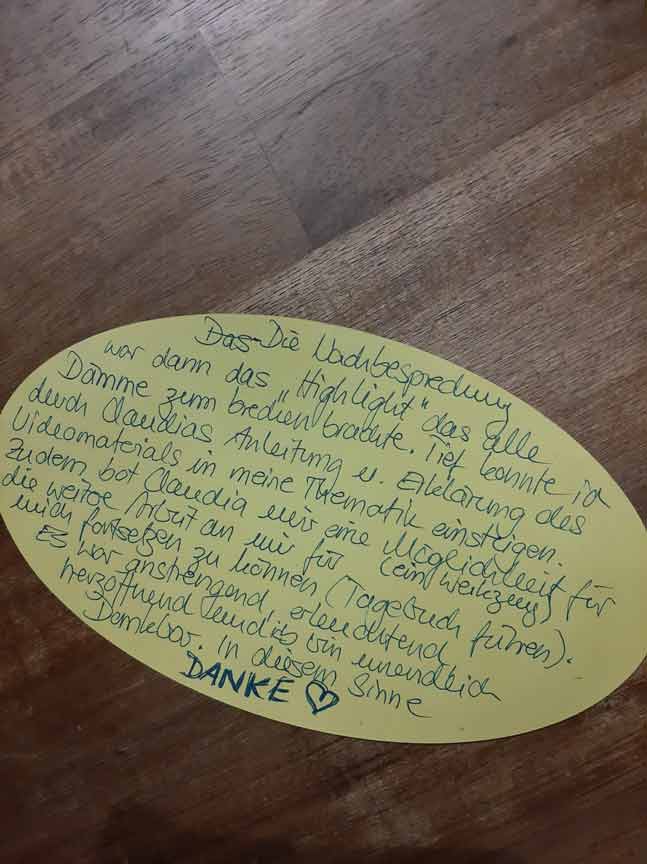 Das Die Nachbesprechung
war dann das "Highlight" das alle
Dämme zum brechen brachte. Tief konnte ich
durch Claudias Anleitung u. Erklärung des
Videomaterials in meine Thematik einsteigen.
Zudem bot Claudia mir eine Möglichkeit für
die weitere Arbeit an mir für (ein Werkzeug) für
mich fortsetzen zu können (Tagebuch führen).
Es war anstrengend, erleuchtend
herzöffnend und ich bin unendlich
Dankbar. In diesem Sinne
DANKE ♡